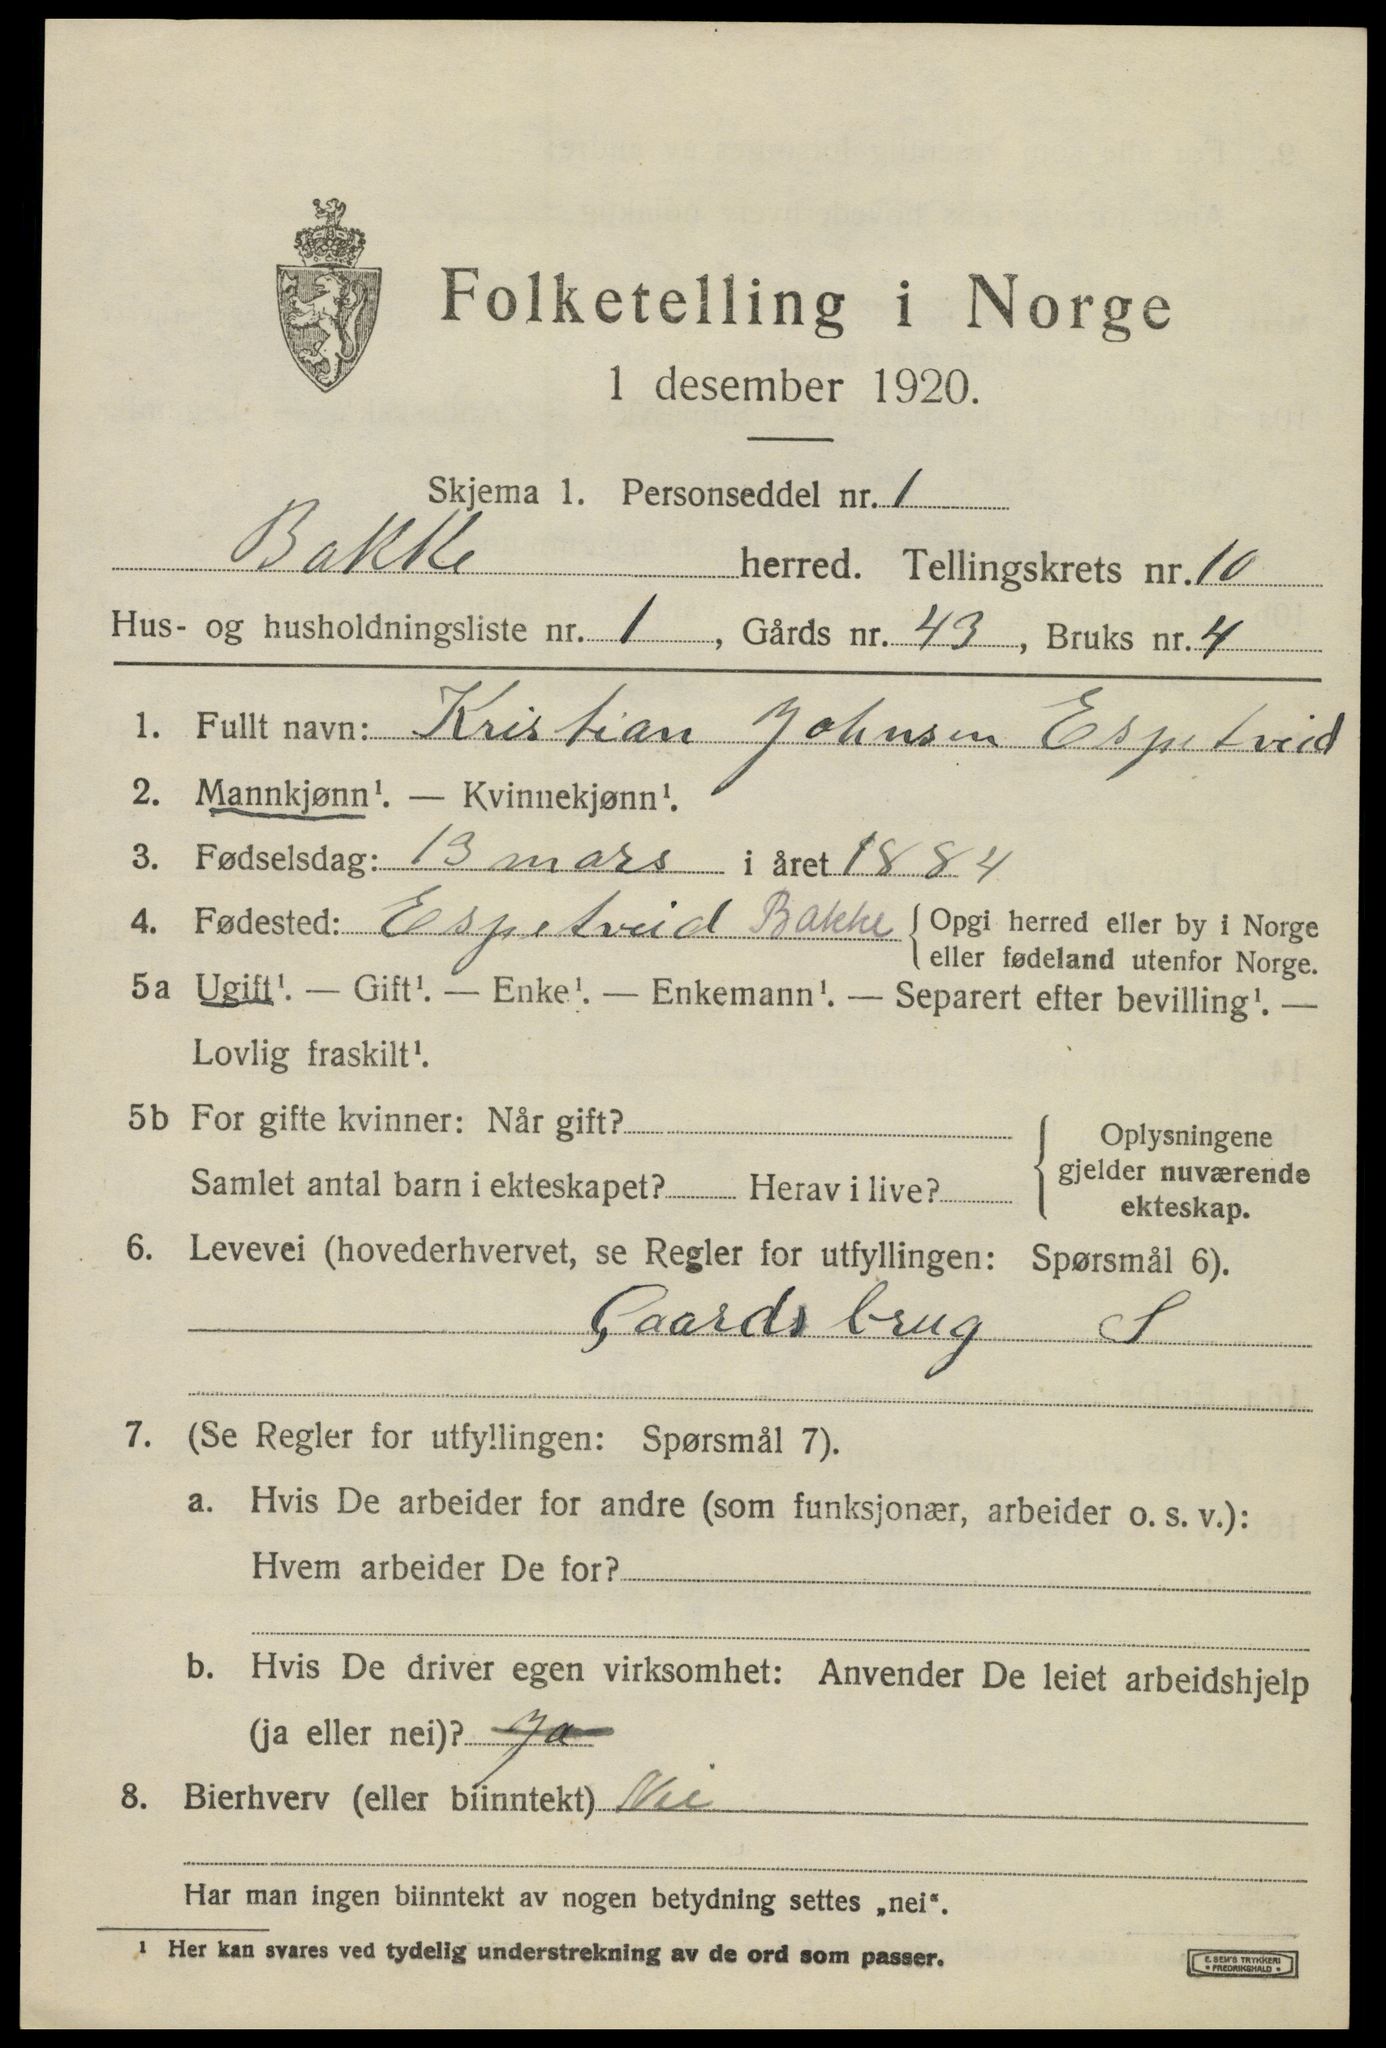 Folketelling i Norge
1 desember 1920.
Skjema 1. Personseddel nr. 1
Bakke herred. Tellingskrets nr. 10
Hus- og husholdningsliste nr. 1, Gårds nr. 43, Bruks nr. 4
1. Fullt navn: Kristian Johnsen Espetveid
2. Mannkjønn¹. — Kvinnekjønn¹.
3. Fødselsdag: 13 mars i året 1884
4. Fødested: Espetveid Bakke { Opgi herred eller by i Norge
eller fødeland utenfor Norge.
5a Ugift¹. — Gift¹. — Enke¹. — Enkemann¹. — Separert efter bevilling¹. —
Lovlig fraskilt¹.
5b For gifte kvinner: Når gift?
Samlet antal barn i ekteskapet? Herav i live?
Oplysningene
gjelder nuværende
ekteskap.
6. Levevei (hovederhvervet, se Regler for utfyllingen: Spørsmål 6).
Gaardsbrug S
7. (Se Regler for utfyllingen: Spørsmål 7).
a. Hvis De arbeider for andre (som funksjonær, arbeider o. s. v.):
Hvem arbeider De for?
b. Hvis De driver egen virksomhet: Anvender De leiet arbeidshjelp
(ja eller nei)? Ja
8. Bierhverv (eller biinntekt) Nei
Har man ingen biinntekt av nogen betydning settes „nei“.
¹ Her kan svares ved tydelig understrekning av de ord som passer.
E. SEM'S TRYKKERI
• FREDRIKSHALD •